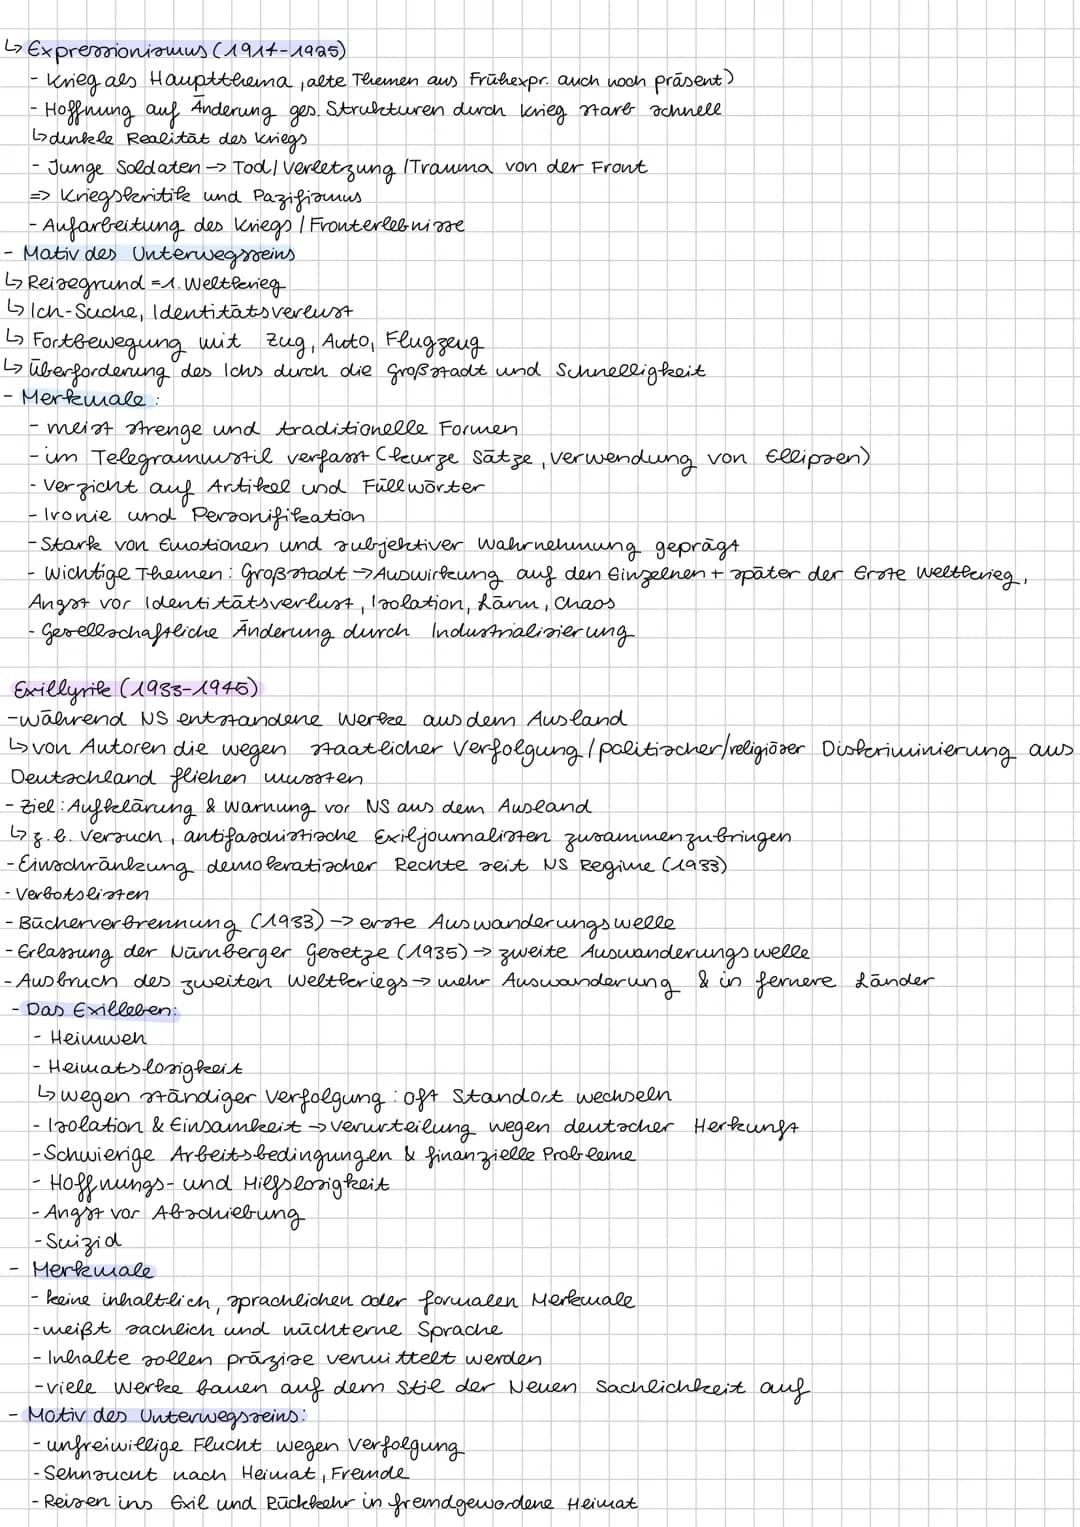 ↳ Expressionismus (1914-1925)
- Krieg als Hauptthema, alte Themen aus Frühexpr. auch noch präsent)
- Hoffnung auf Änderung ges. Strukturen durch Krieg starb schnell
↳ dunkle Realität des Kriegs
- Junge Soldaten → Tod / Verletzung / Trauma von der Front
=> Kriegskritik und Pazifismus
- Aufarbeitung des Kriegs / Fronterlebnisse
- Motiv des Unterwegsseins
↳ Reisegrund = 1. Weltkrieg
↳ Ich-Suche, Identitätsverlust
↳ Fortbewegung mit Zug, Auto, Flugzeug
↳ Überforderung des Ichs durch die Großstadt und Schnelligkeit
- Merkmale:
- meist strenge und traditionelle Formen
- im Telegrammstil verfasst (kurze Sätze, Verwendung von Ellipsen)
- Verzicht auf Artikel und Füllwörter
- Ironie und Personifikation
- Stark von Emotionen und subjektiver Wahrnehmung geprägt
- Wichtige Themen: Großstadt → Auswirkung auf den Einzelnen + später der Erste Weltkrieg,
Angst vor Identitätsverlust, Isolation, Lärm, Chaos
- Gesellschaftliche Änderung durch Industrialisierung
Exillyrik (1933-1945)
- während NS entstandene Werke aus dem Ausland
↳ von Autoren die wegen staatlicher Verfolgung / politischer/religiöser Diskriminierung aus
Deutschland fliehen mussten
- Ziel: Aufklärung & Warnung vor NS aus dem Ausland
↳ z.B. Versuch, antifaschistische Exiljournalisten zusammenzubringen
- Einschränkung demokratischer Rechte seit NS Regime (1933)
- Verbotslisten
- Bücherverbrennung (1933) → erste Auswanderungswelle
- Erlassung der Nürnberger Gesetze (1935) → zweite Auswanderungswelle
- Ausbruch des zweiten Weltkriegs → mehr Auswanderung & in fernere Länder
- Das Exilleben:
- Heimweh
- Heimatslosigkeit
↳ wegen ständiger Verfolgung: oft Standort wechseln
- Isolation & Einsamkeit → Verurteilung wegen deutscher Herkunft
- Schwierige Arbeitsbedingungen & finanzielle Probleme
- Hoffnungs- und Hilfslosigkeit
- Angst vor Abschiebung
- Suizid
- Merkmale
- keine inhaltlich, sprachlichen oder formalen Merkmale
- meißt sachlich und nüchterne Sprache
- Inhalte sollen präzise vermittelt werden
- viele Werke bauen auf dem Stil der Neuen Sachlichkeit auf
- Motiv des Unterwegsseins:
- unfreiwillige Flucht wegen Verfolgung
- Sehnsucht nach Heimat, Fremde
- Reisen ins Exil und Rückkehr in fremdgewordene Heimat